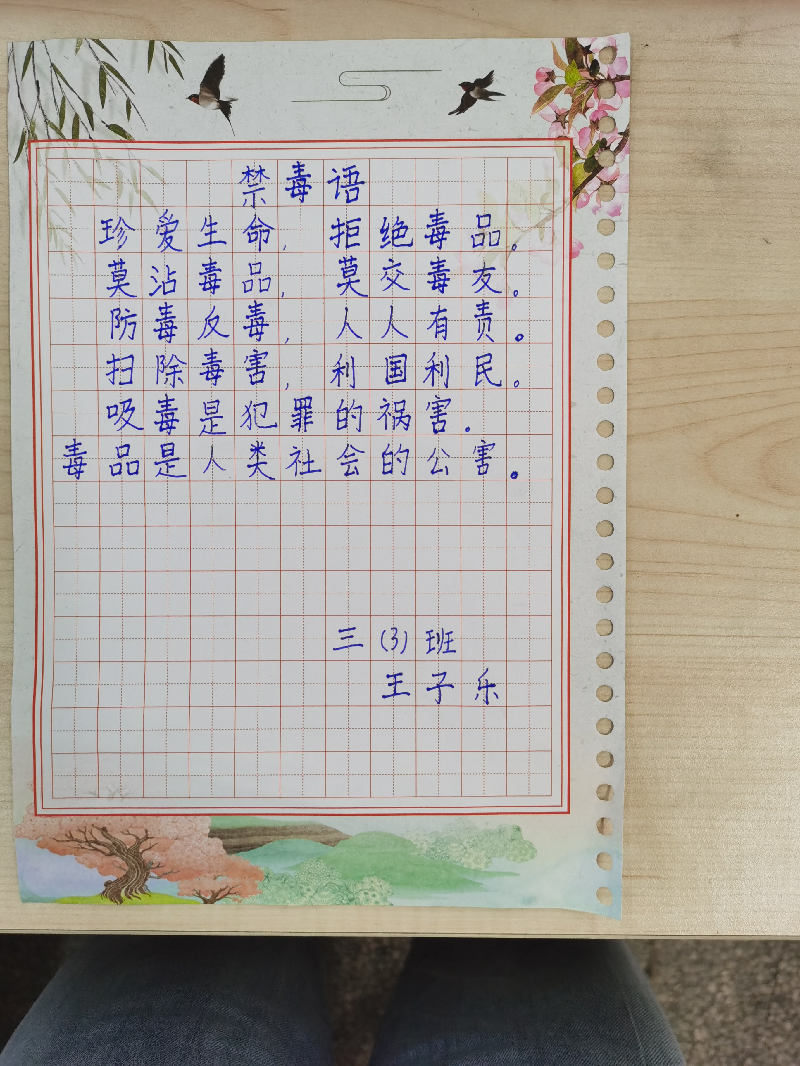 禁毒语
珍爱生命，拒绝毒品。
莫沾毒品，莫交毒友。
防毒反毒，人人有责。
扫除毒害，利国利民。
吸毒是犯罪的祸害.
毒品是人类社会的公害。
三(3)班
王子乐